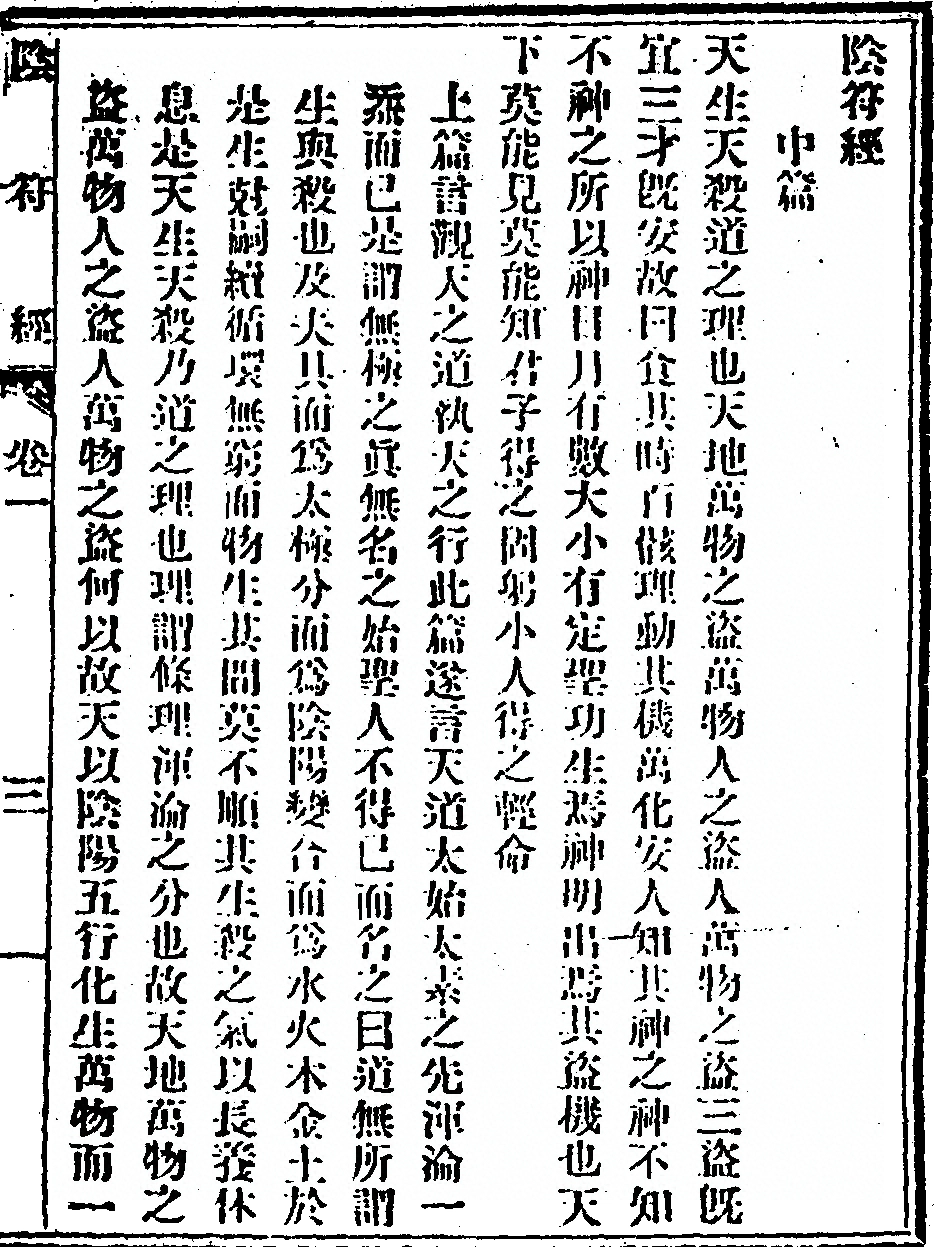 陰符經
中篇
天生天殺道之理也天地萬物之盜萬物人之盜人萬物之盜三盜旣
宜三才旣安故曰食其時百骸理動其機萬化安人知其神之神不知
不神之所以神日月有數大小有定聖功生焉神明出焉其盜機也天
下莫能見莫能知君子得之固躬小人得之輕命
上篇言觀天之道執天之行此篇遂言天道太始太素之先渾淪一
炁而已是謂無極之眞無名之始聖人不得已而名之曰道無所謂
生與殺也及夫具而爲太極分而爲陰陽變合而爲水火木金土於
是生尅嗣續循環無窮而物生其間莫不順其生殺之氣以長養休
息是天生天殺乃道之理也理謂條理渾淪之分也故天地萬物之
盜萬物人之盜人萬物之盜何以故天以陰陽五行化生萬物而一
陰符經
卷一
三